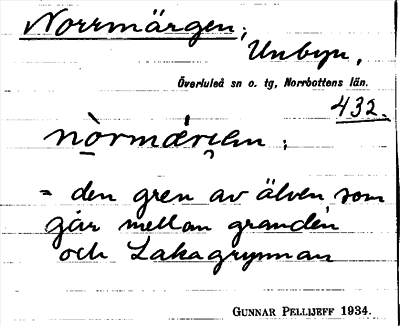 Norrmärgen;
Unbyn,
Överluleå sn o. tg, Norrbottens län.
432.
= den gren av älven som
går mellan grandén
och Lakagrynnan
GUNNAR PELLIJEFF 1934.